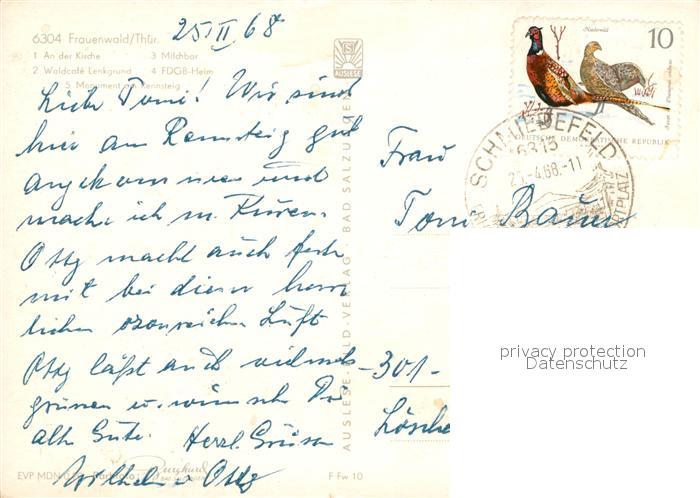 6304 Frauenwald/Thür.
1 An der Kirche 3 Milchbar
2 Waldcafé Lenkgrund 4 FDGB-Heim
5 Monument am Rennsteig
25. II. 68
Liebe Toni! Wir sind
hier am Rennsteig gut
angekommen und
mache ich m. Kuren.
Otty macht auch feste
mit bei dieser herr
lichen ozonreichen Luft
Otty läßt auch vielmals
grüssen u. wünscht Dir
alles Gute. Herzl. Grüsse
Wilhelm u. Otty
EVP MDN
F Fw 10
AUSLESE
AUSLESE-BILD-VERLAG · BAD SALZUNGEN
Niederwild
10
DEUTSCHE DEMOKRATISCHE REPUBLIK
SCHMIEDEFELD
6315
-4.68.-11
Frau
Toni Bauer
-301-
privacy protection
Datenschutz